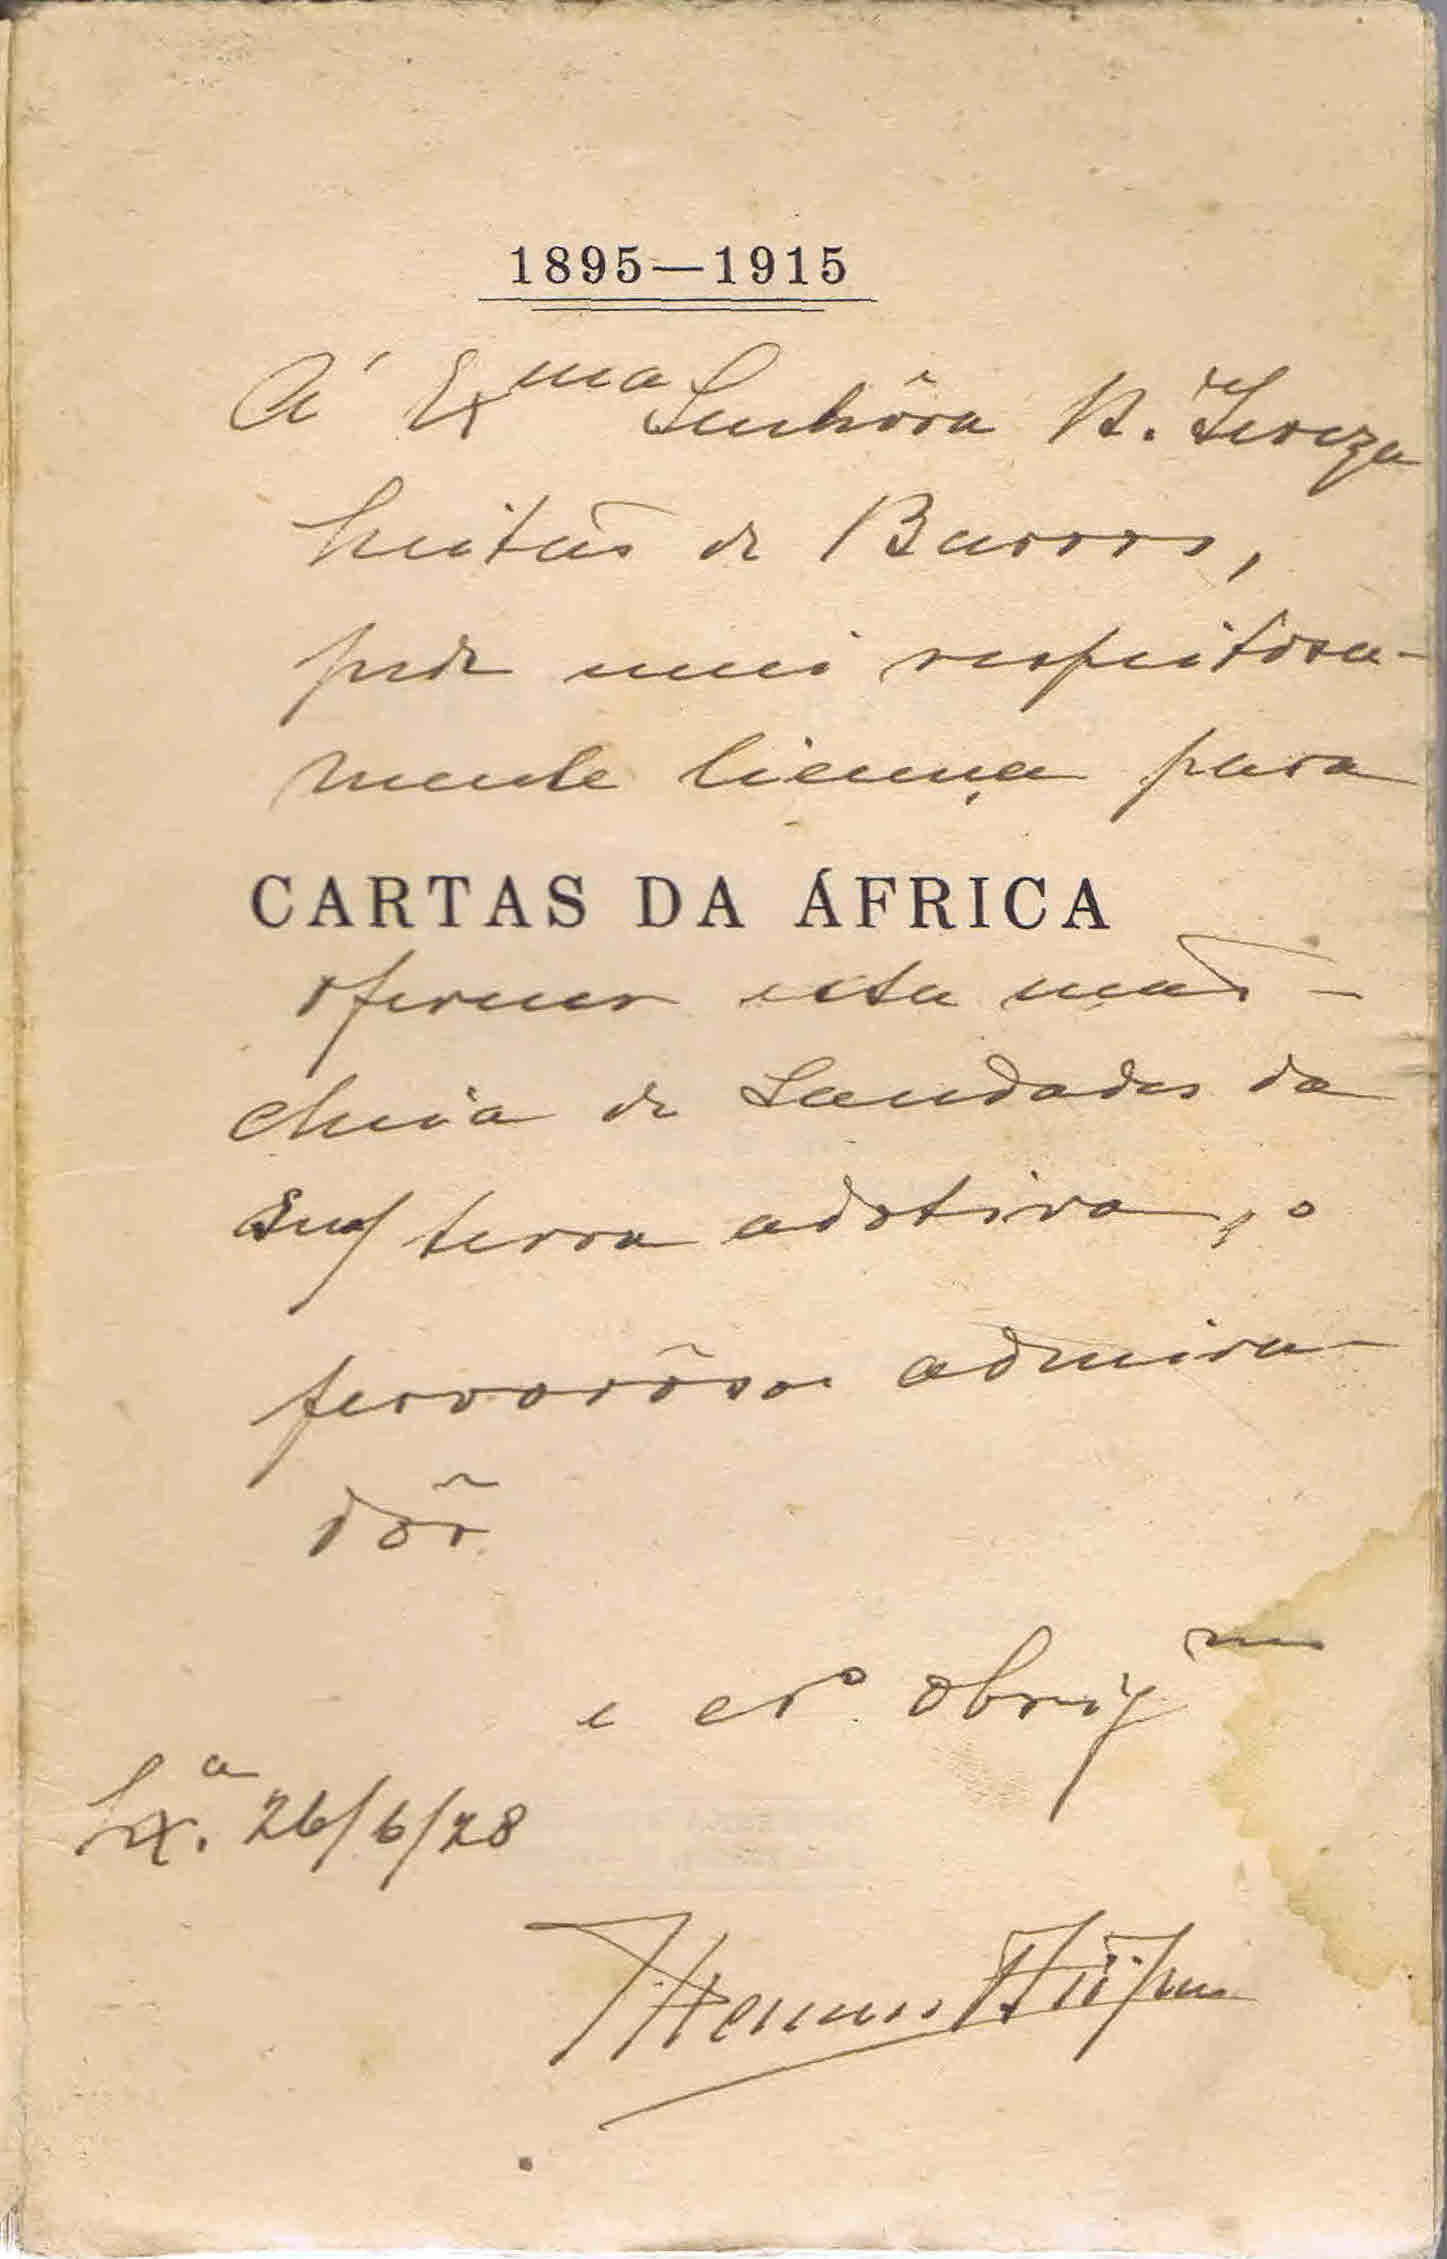 1895—1915
Á Exma Senhôra D. Tereza
Leitão de Barros,
pede mui respeitosa-
mente licença para
CARTAS DA ÁFRICA
oferecer esta mão-
cheia de Saudades da
Sua terra adotiva, o
fervorôso admira-
dôr
e cro. obrigmo
Lxa. 26/6/28